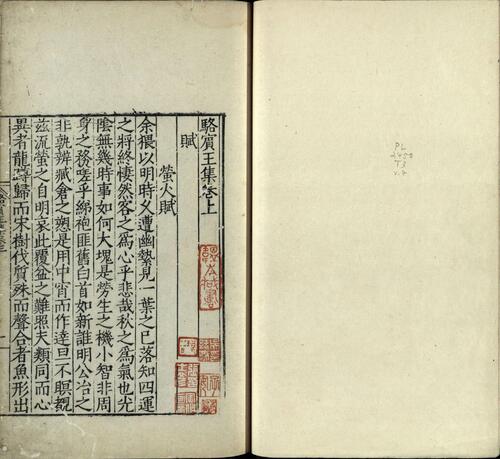 駱賓王集卷上
賦
螢火賦
余猥以明時久遭幽縶見一葉之已落知四運
之將終悽然客之爲心乎悲哉秋之爲氣也光
陰無幾時事如何大塊是勞生之機小智非周
身之務嗟乎綈袍匪舊白首如新誰明公冶之
非孰辨臧倉之愬是用中宵而作達旦不瞑覩
玆流螢之自明哀此覆盆之難照夫類同而心
異者龍蹲歸而宋樹伐質殊而聲合者魚形出
PL
2450
T3
v.4